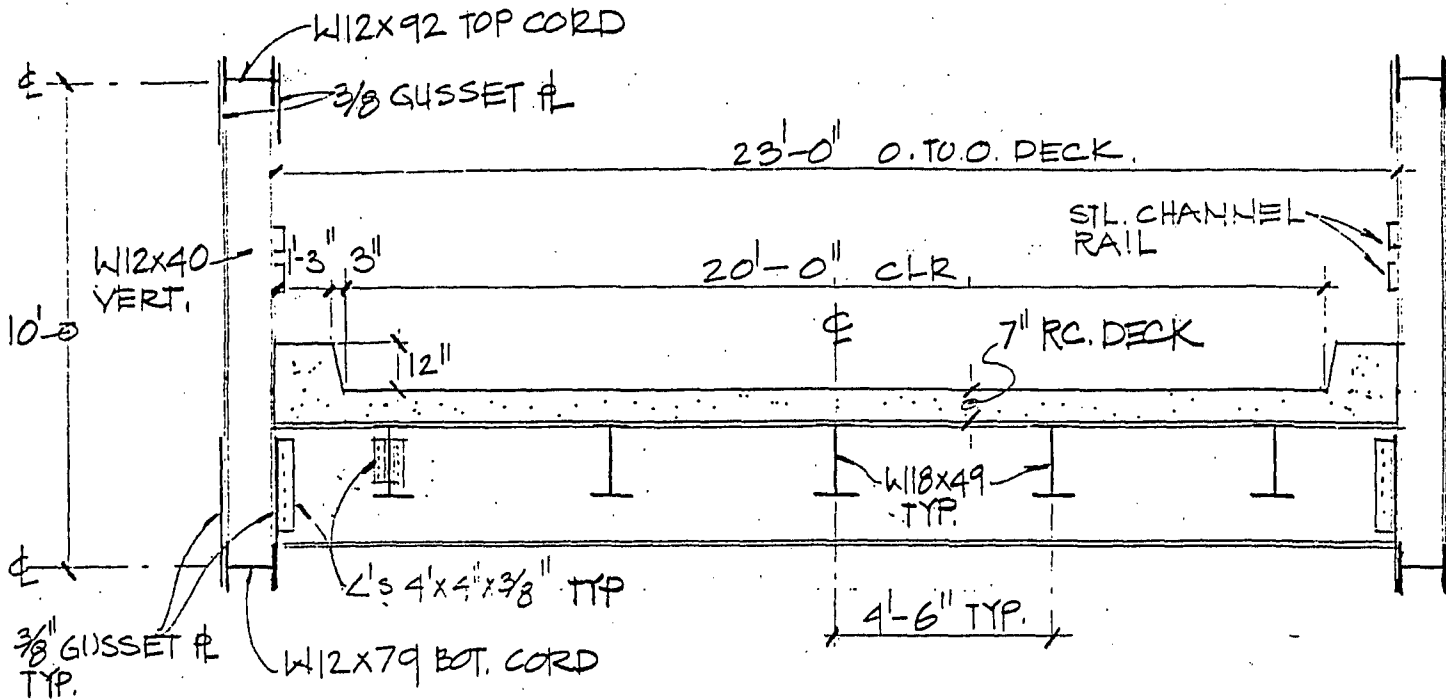 W12X92 TOP CORD
℄
3/8 GUSSET ℄
23'-0" O. TO.O. DECK.
STL. CHANNEL
RAIL
W12X40
VERT.
1'-3" 3"
20'-0" CLR.
10'
℄
7" RC. DECK
12"
W18X49
TYP.
∠'s 4'x4"x3/8" TYP
℄
4'-6" TYP.
3/8" GUSSET ℄
TYP.
W12X79 BOT. CORD